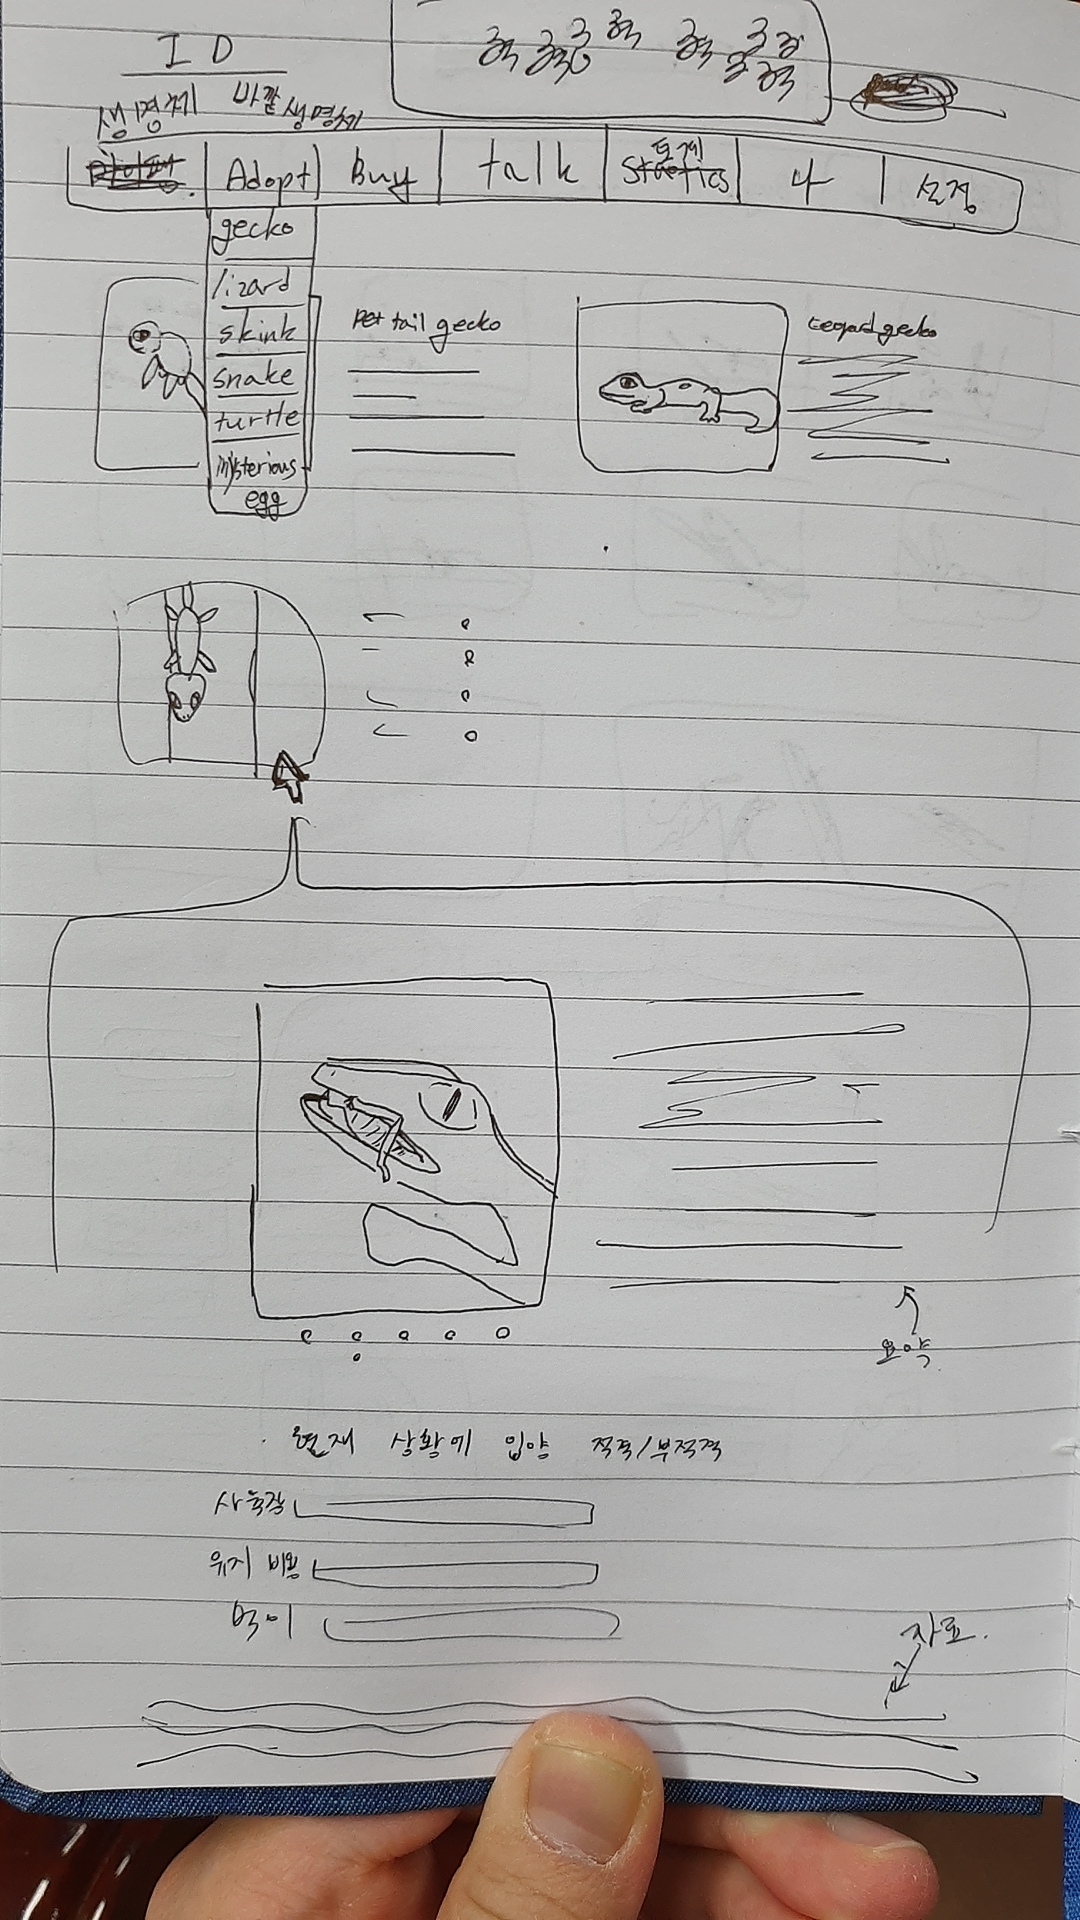 I D
생명체 바깥 생명체
Adopt Buy talk 통계 나 설정
gecko
lizard
skink
snake
turtle
mysterious
egg
Pet tail gecko
Leopard gecko
요약
현재 상황에 입양 적족/부적격
사육장
유지 비용
먹이
자료.